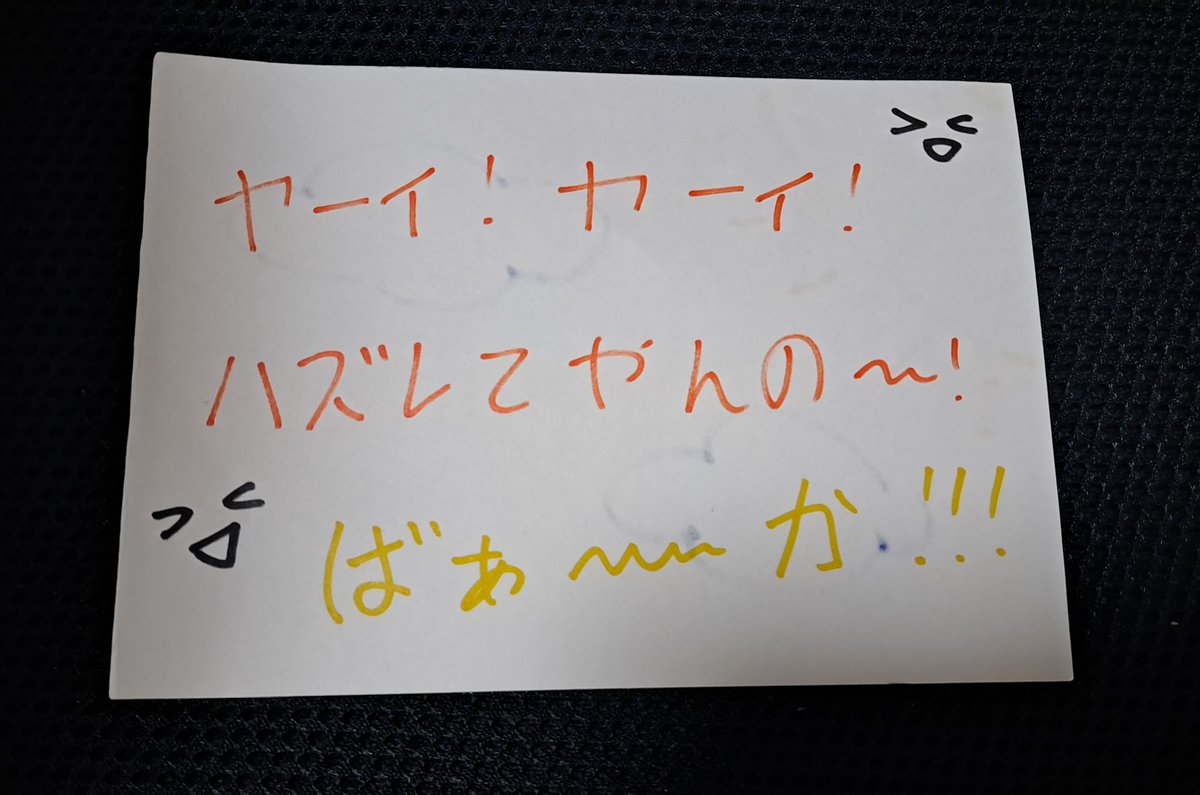 ヤーイ!ヤーイ!
ハズレてやんの〜!
ばぁ〜〜か!!!